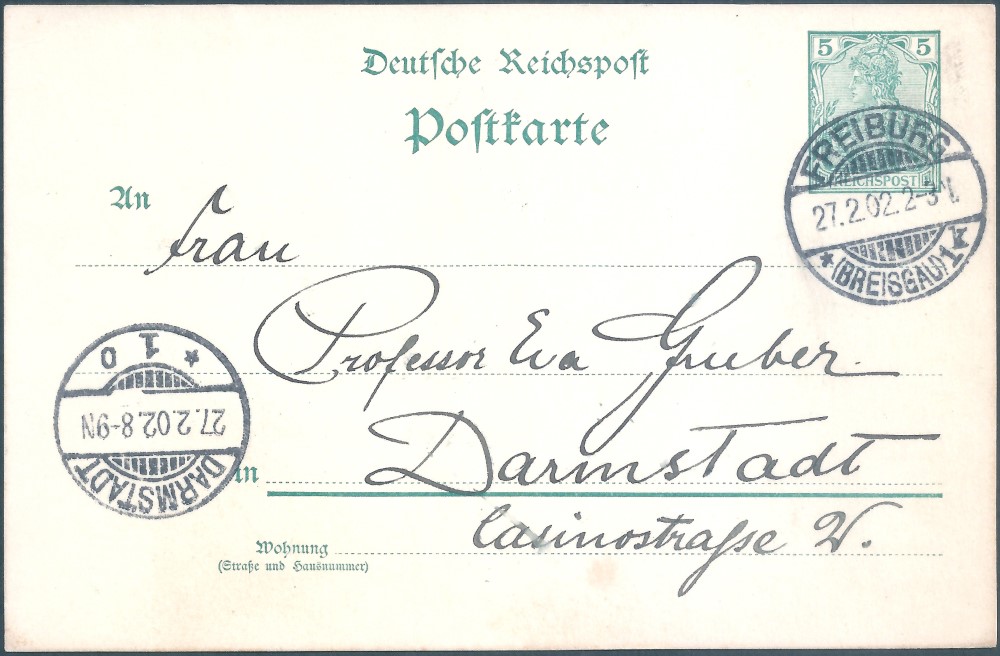 Deutsche Reichspost
Postkarte
5 5
REICHSPOST
FREIBURG
27.2.02.2-3N.
* (BREISGAU) 1k
An Frau
Professor Eva Gruber.
in Darmstadt
Casinostraſse
Wohnung
(Straße und Hausnummer)
* 1 o
27.2.02.8-9N
DARMSTADT